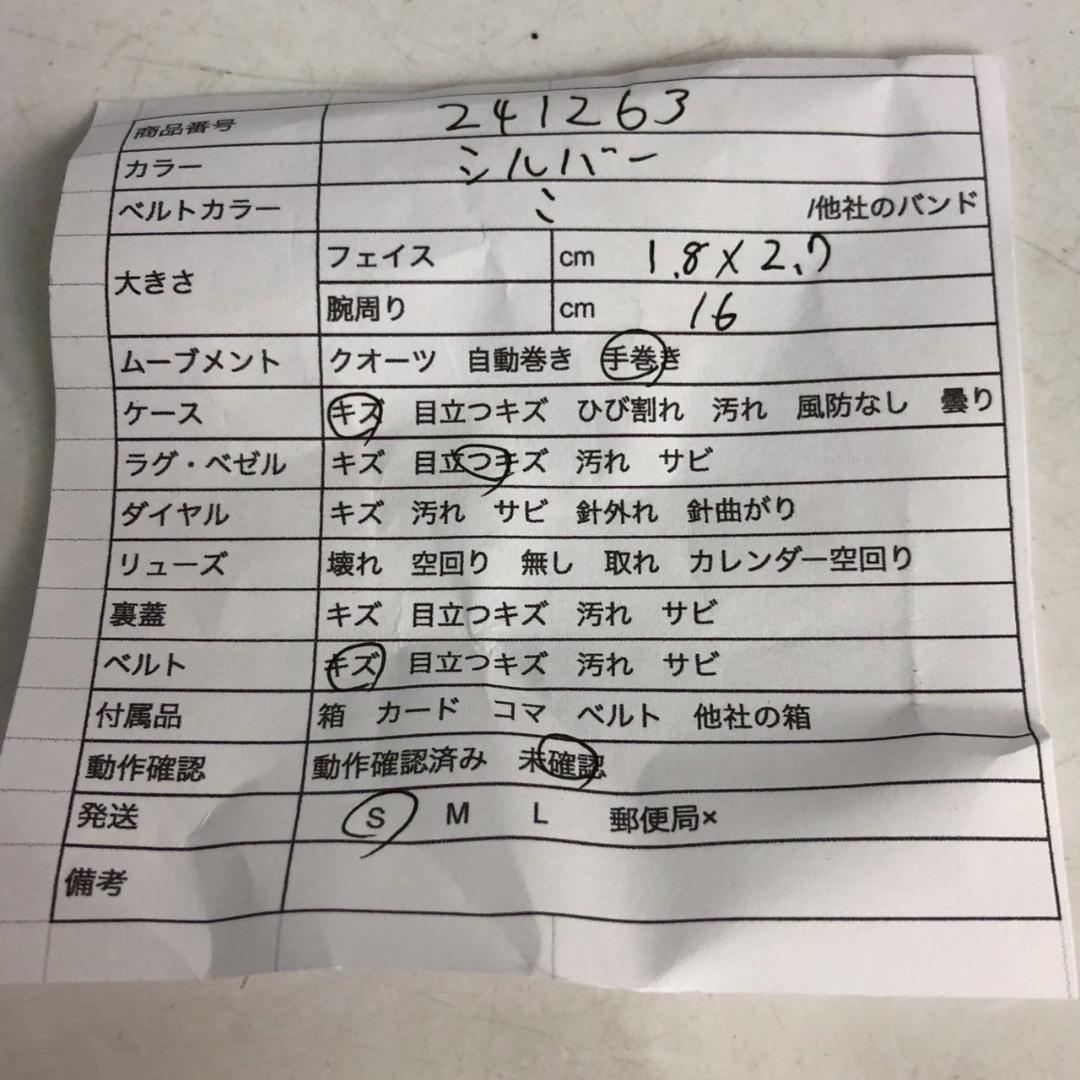 商品番号 241263
カラー シルバー
ベルトカラー ミ /他社のバンド
大きさ フェイス cm 1.8×2.7
腕周り cm 16
ムーブメント クオーツ 自動巻き 手巻き
ケース キズ 目立つキズ ひび割れ 汚れ 風防なし 曇り
ラグ・ベゼル キズ 目立つキズ 汚れ サビ
ダイヤル キズ 汚れ サビ 針外れ 針曲がり
リューズ 壊れ 空回り 無し 取れ カレンダー空回り
裏蓋 キズ 目立つキズ 汚れ サビ
ベルト キズ 目立つキズ 汚れ サビ
付属品 箱 カード コマ ベルト 他社の箱
動作確認 動作確認済み 未確認
発送 S M L 郵便局×
備考